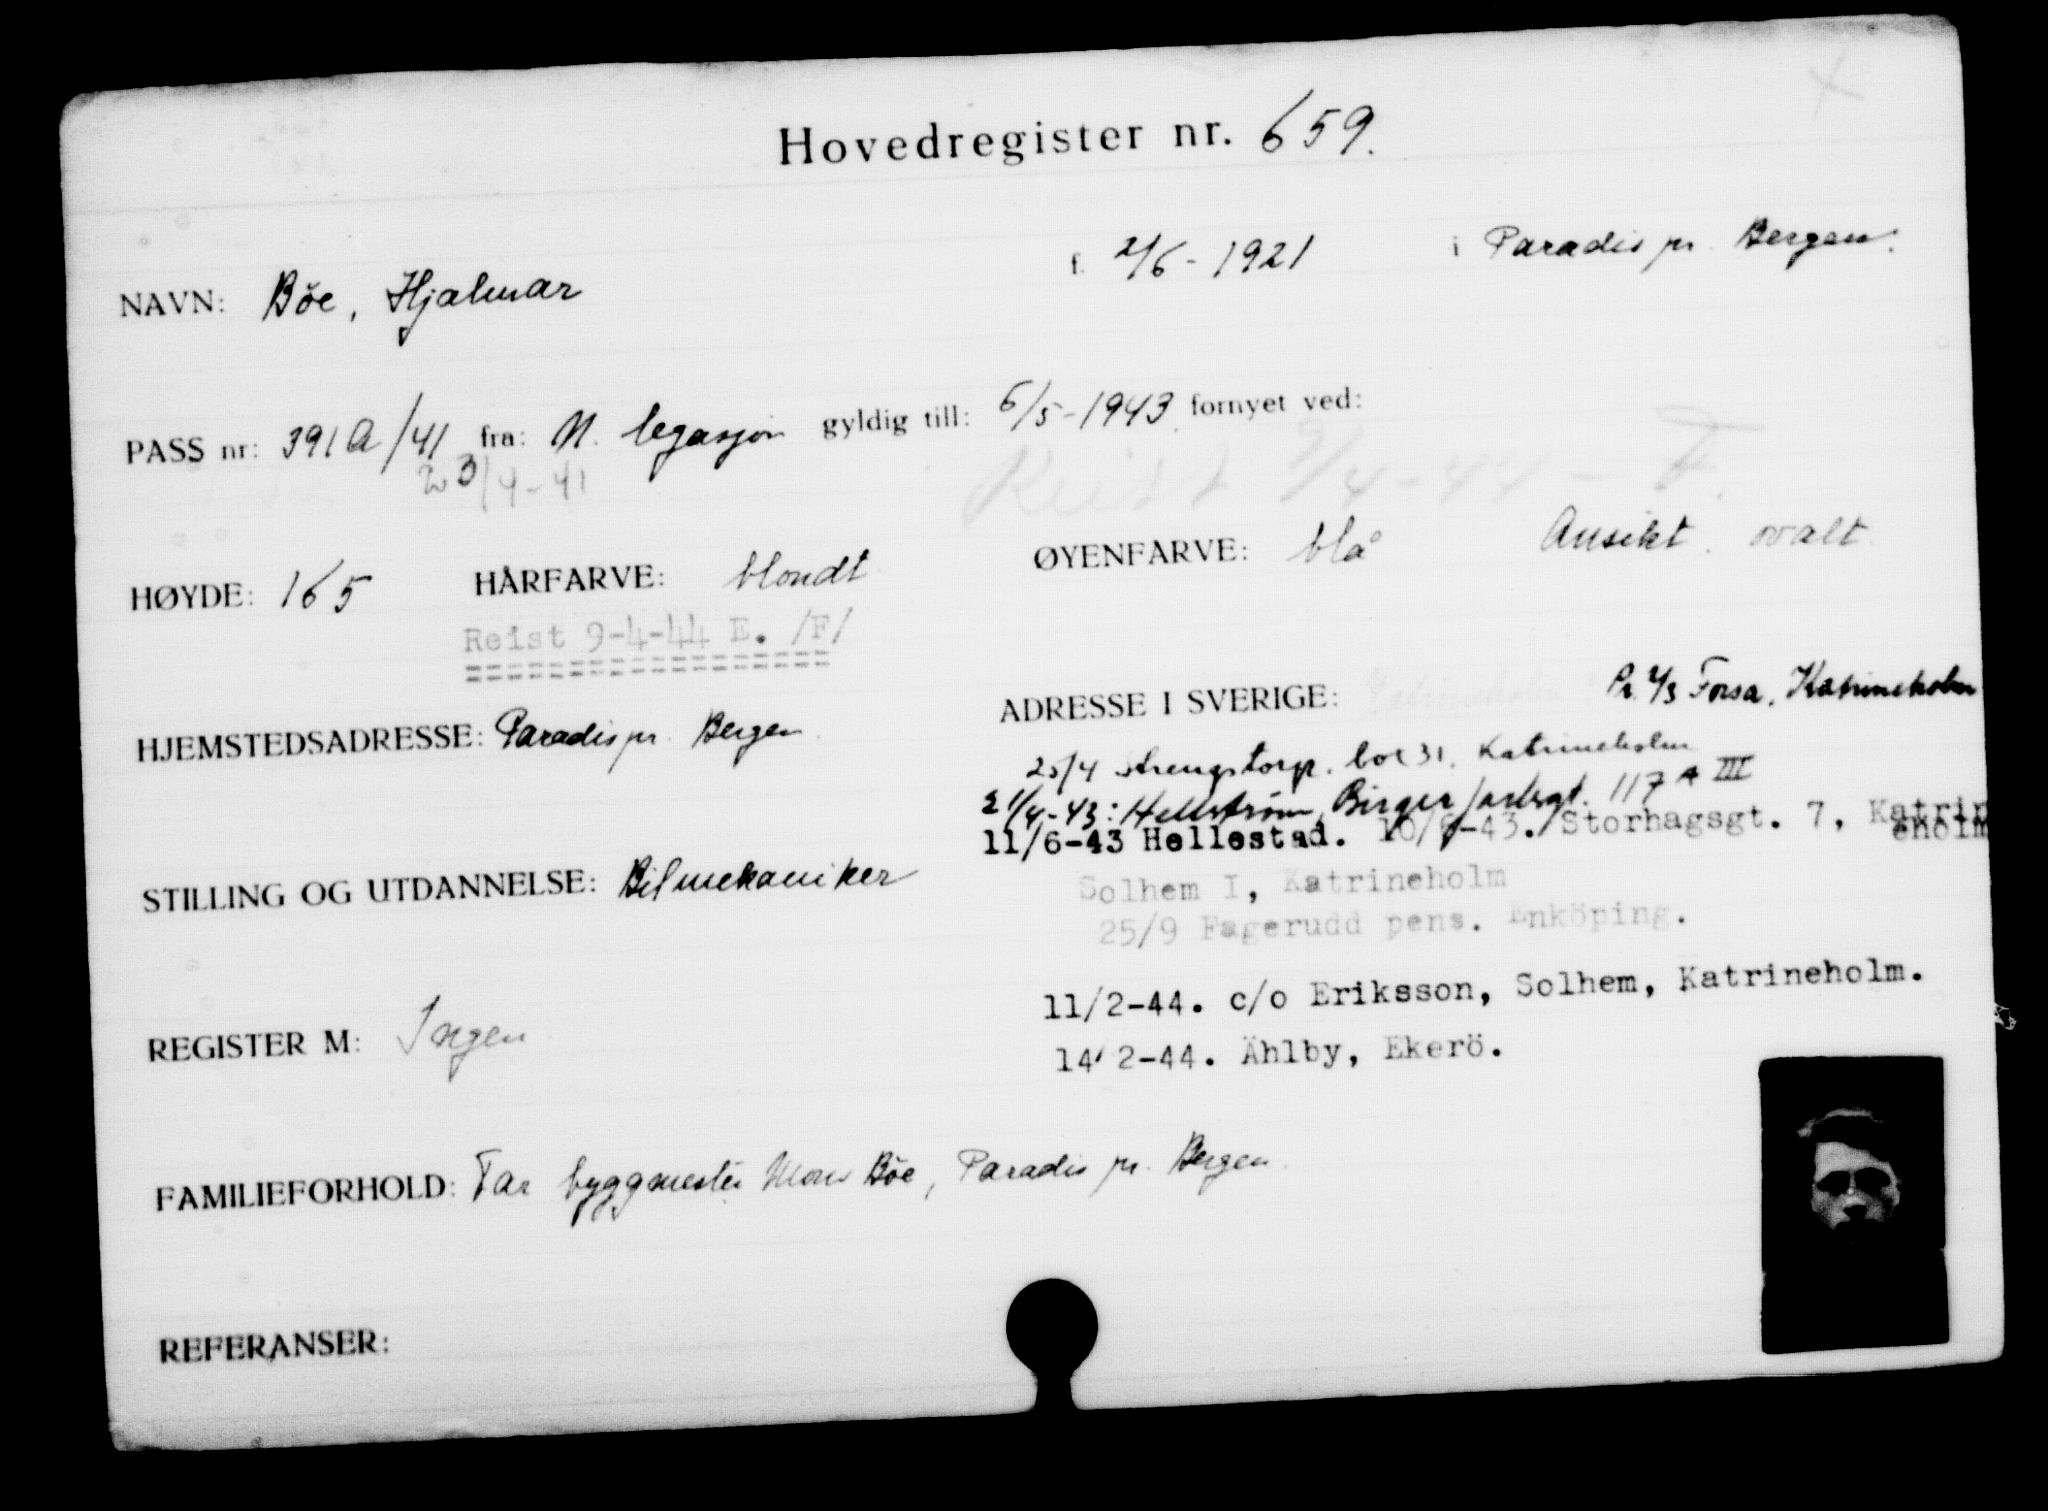 Hovedregister nr. 659.
NAVN: Böe, Hjalmar f. 2/6-1921 i Paradis pr. Bergen.
PASS nr: 391A/41 fra: N. legasjon gyldig till: 6/5-1943 fornyet ved:
23/4-41
Reist 9/4-44 - F.
HØYDE: 165 HÅRFARVE: blondt ØYENFARVE: blå Ansikt ovalt
Reist 9-4-44 E. /F/
=================
HJEMSTEDSADRESSE: Paradis pr. Bergen ADRESSE I SVERIGE: Forsa, Katrineholm
25/4 Strengstorp. box 31. Katrineholm
21/4-43: Hellstrøm, Birger Jarlsgt. 117 A III
11/6-43 Hellestad. 10/6-43. Storhagsgt. 7, Katrin
eholm
STILLING OG UTDANNELSE: Bilmekaniker
Solhem I, Katrineholm
25/9 Fagerudd pens. Enköping.
11/2-44. c/o Eriksson, Solhem, Katrineholm.
REGISTER M: Ingen
14/2-44. Ählby, Ekerö.
FAMILIEFORHOLD: Far byggmester Mons Böe, Paradis pr. Bergen.
REFERANSER: